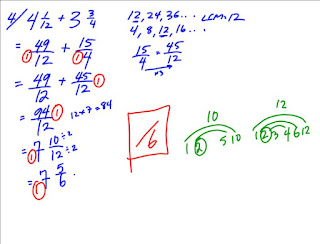 4/ 4 1/12 + 3 3/4
= 49/12 + 15/4 ①
= 49/12 + 45/12 ①
= 94/12 ① 12x7=84
= ① 7 10/12 ÷2 ÷2
= ① 7 5/6.
12, 24, 36... LCM=12
4, 8, 12, 16...
15/4 = 45/12
x3
/6
10
1 2 5 10
12
1 2 3 4 6 12